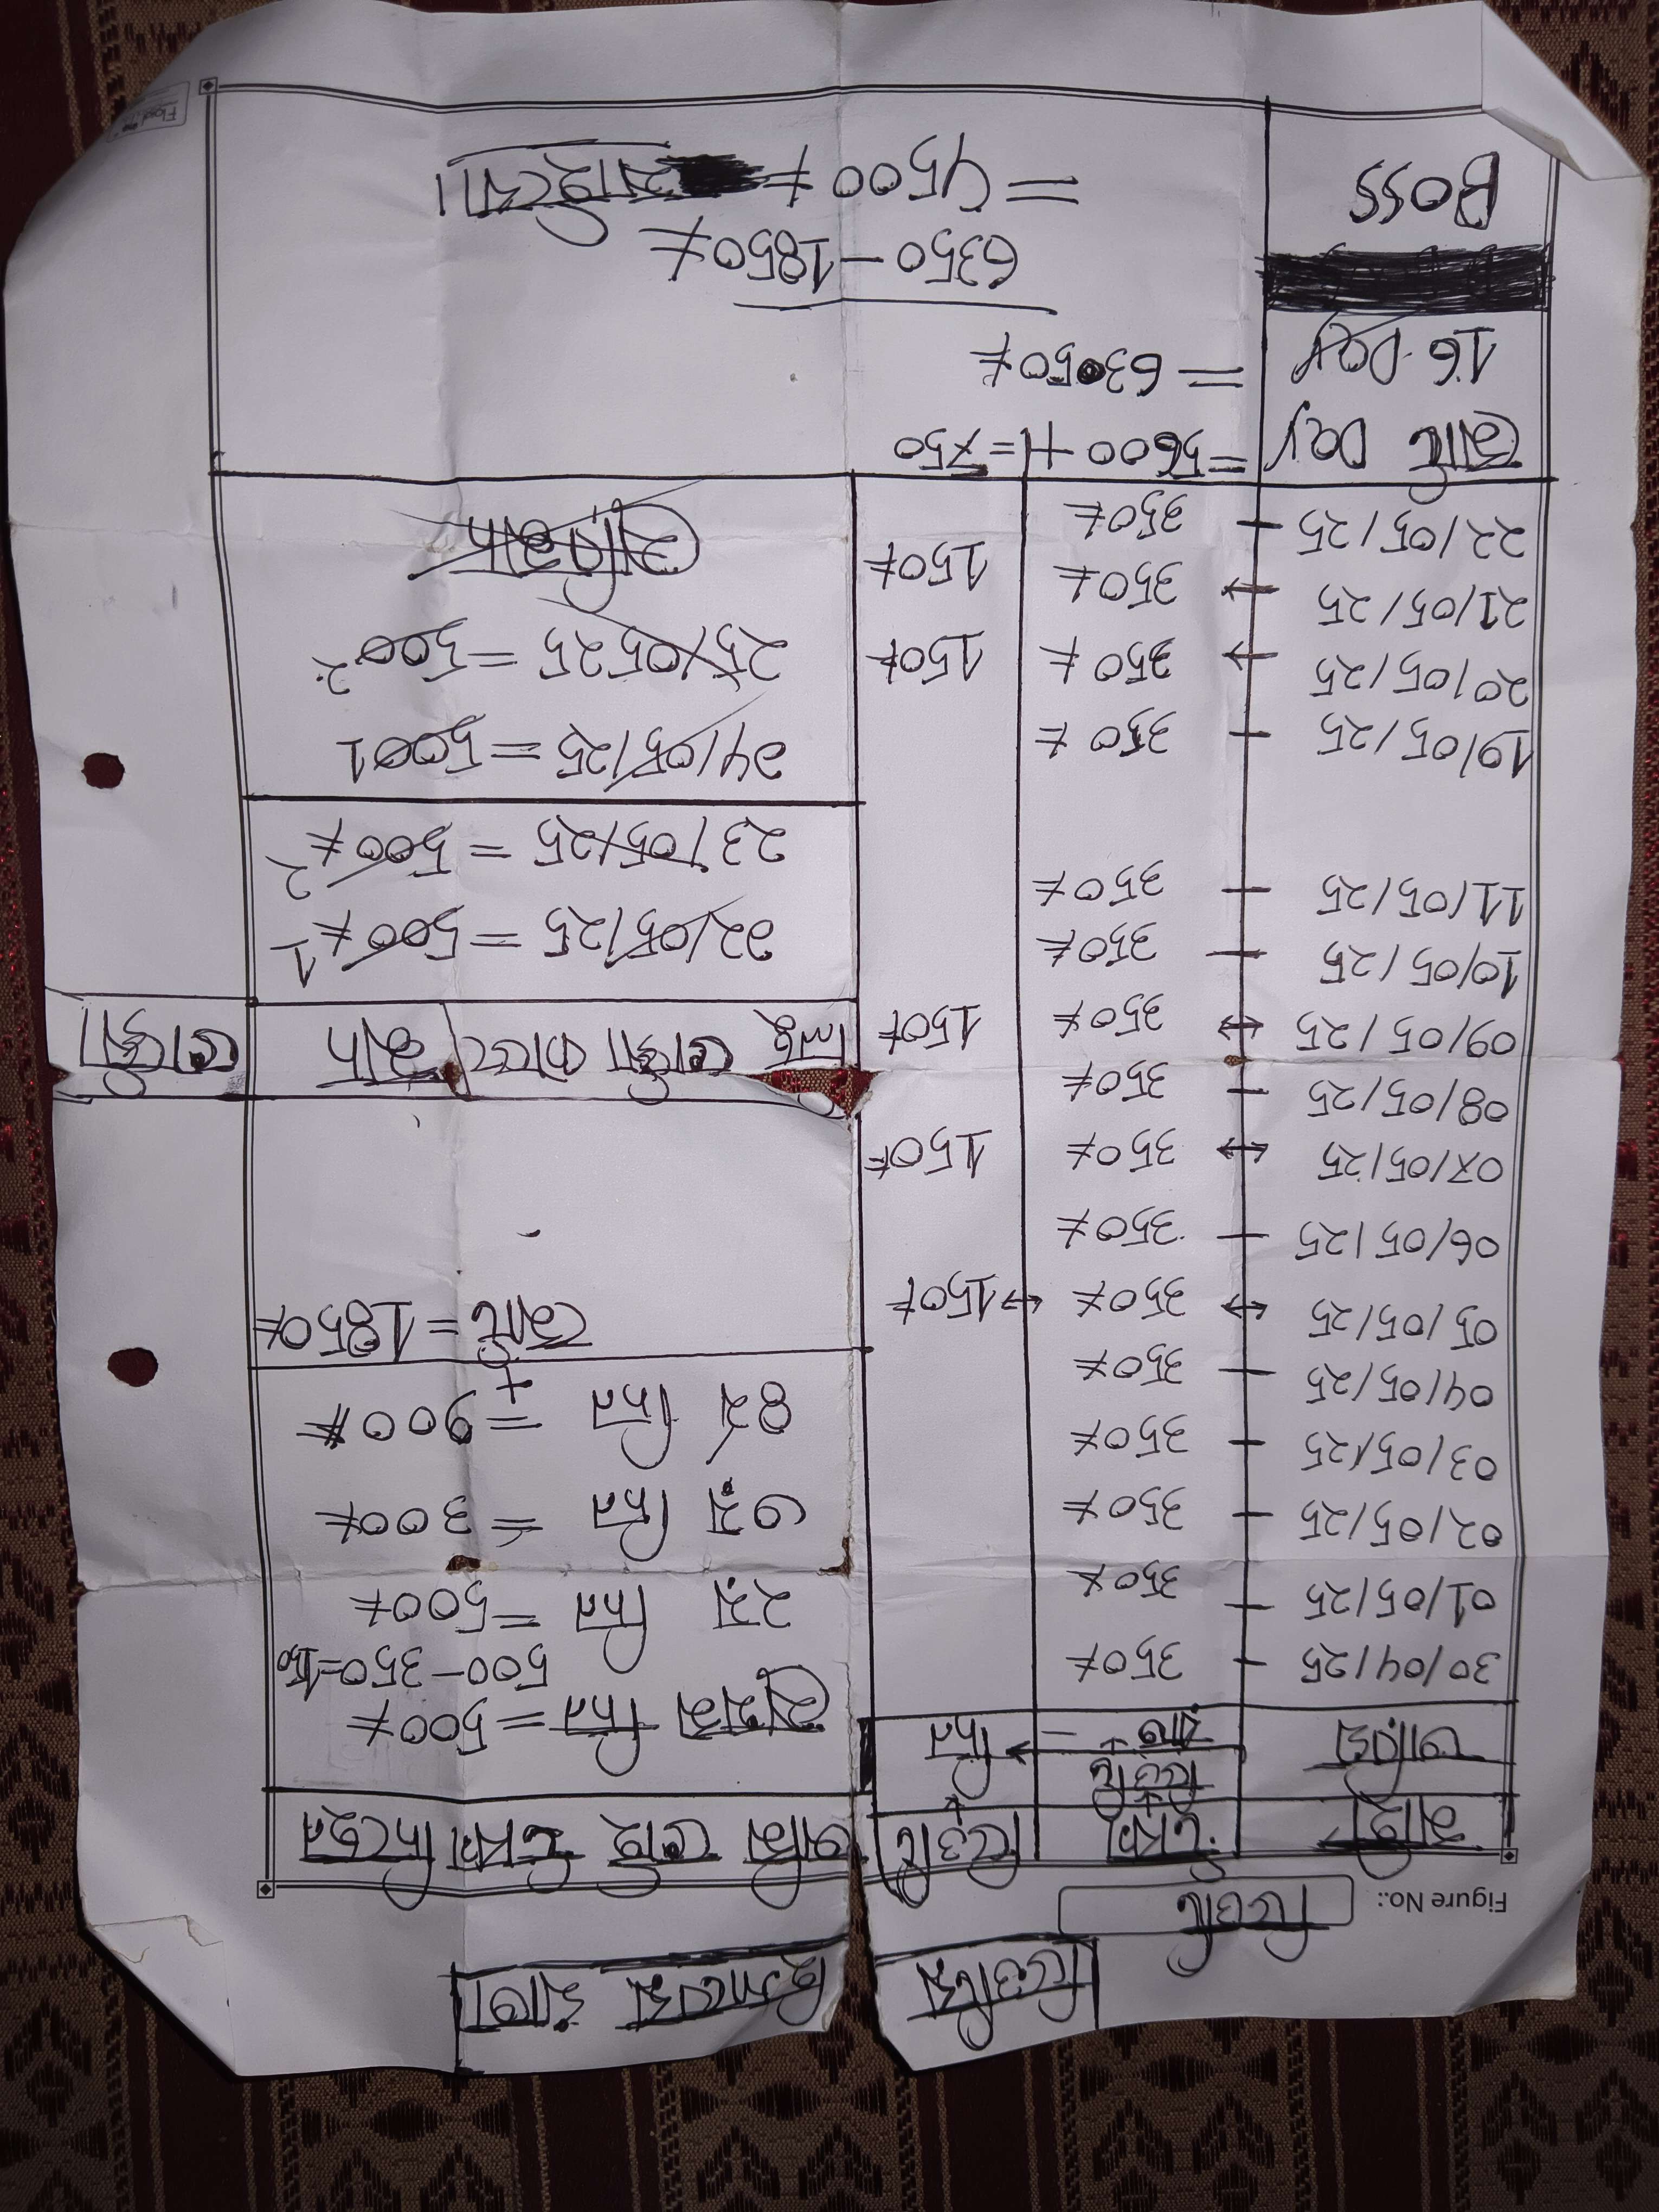 ডিউটির হিসাবের খাতা
Figure No.: ডিউটি
তারিখ টাকা ডিউটি আমি কোই টাকা নিছেন
ডিউটি
রাত → দিন
30/04/25 - 350৳
01/05/25 - 350৳
02/05/25 - 350৳
03/05/25 - 350৳
04/05/25 - 350৳
05/05/25 ↔ 350৳ ↔ 150৳
06/05/25 - 350৳
07/05/25 ↔ 350৳ 150৳
08/05/25 - 350৳
09/05/25 ↔ 350৳ 150৳
10/05/25 - 350৳
11/05/25 - 350৳
19/05/25 - 350৳
20/05/25 → 350৳ 150৳
21/05/25 ↔ 350৳ 150৳
22/05/25 - 350৳
প্রথম দিন = 500৳
500-350=150
২য় দিন = 500৳
৩য় দিন = 300৳
৪র্থ দিন = 900৳
+
মোট = 1850৳
22/05/25 = 500৳ 1
23/05/25 = 500৳ 2
24/05/25 = 500 1
25/05/25 = 500 2
মোট Day = 5600 + 1 = 750
16 Day = 6350৳
6350 - 1850৳
Boss = 4500৳